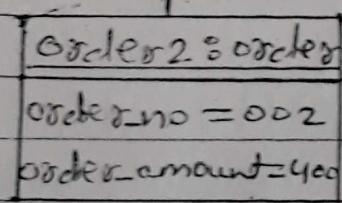 order2:order
order_no=002
order_amount=400